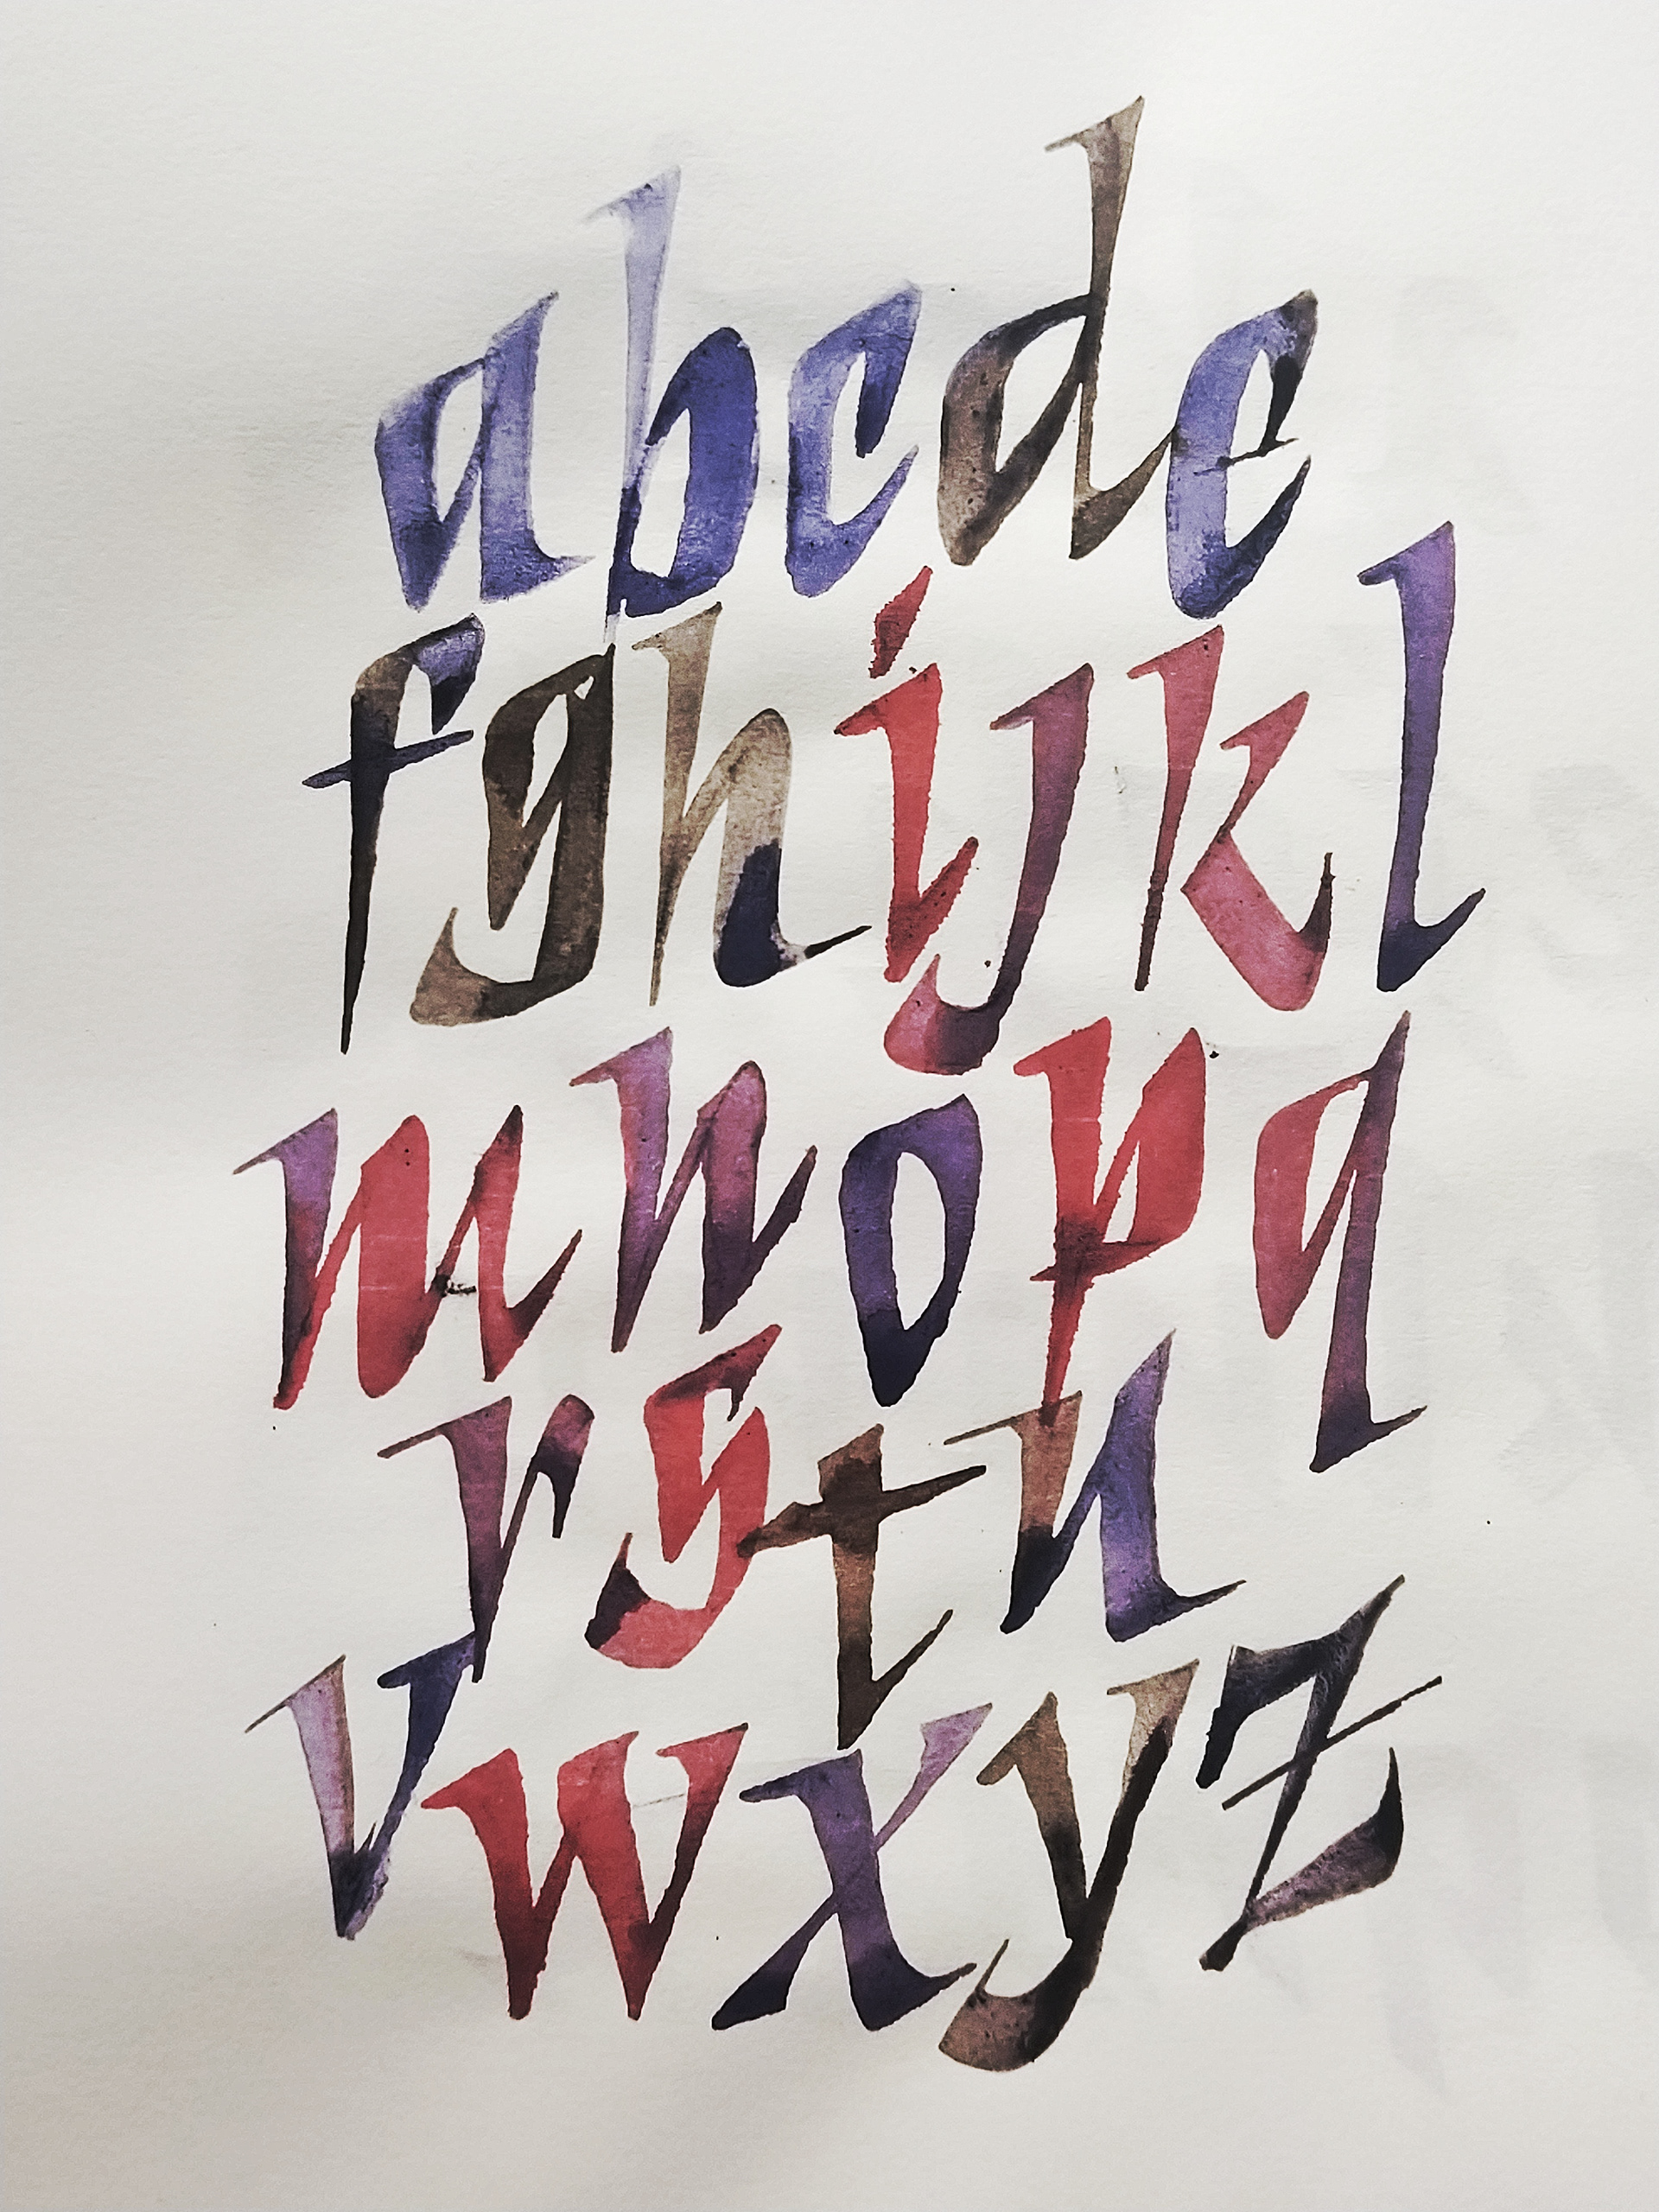 abcde
fghijkl
mnopq
rstu
vwxyz